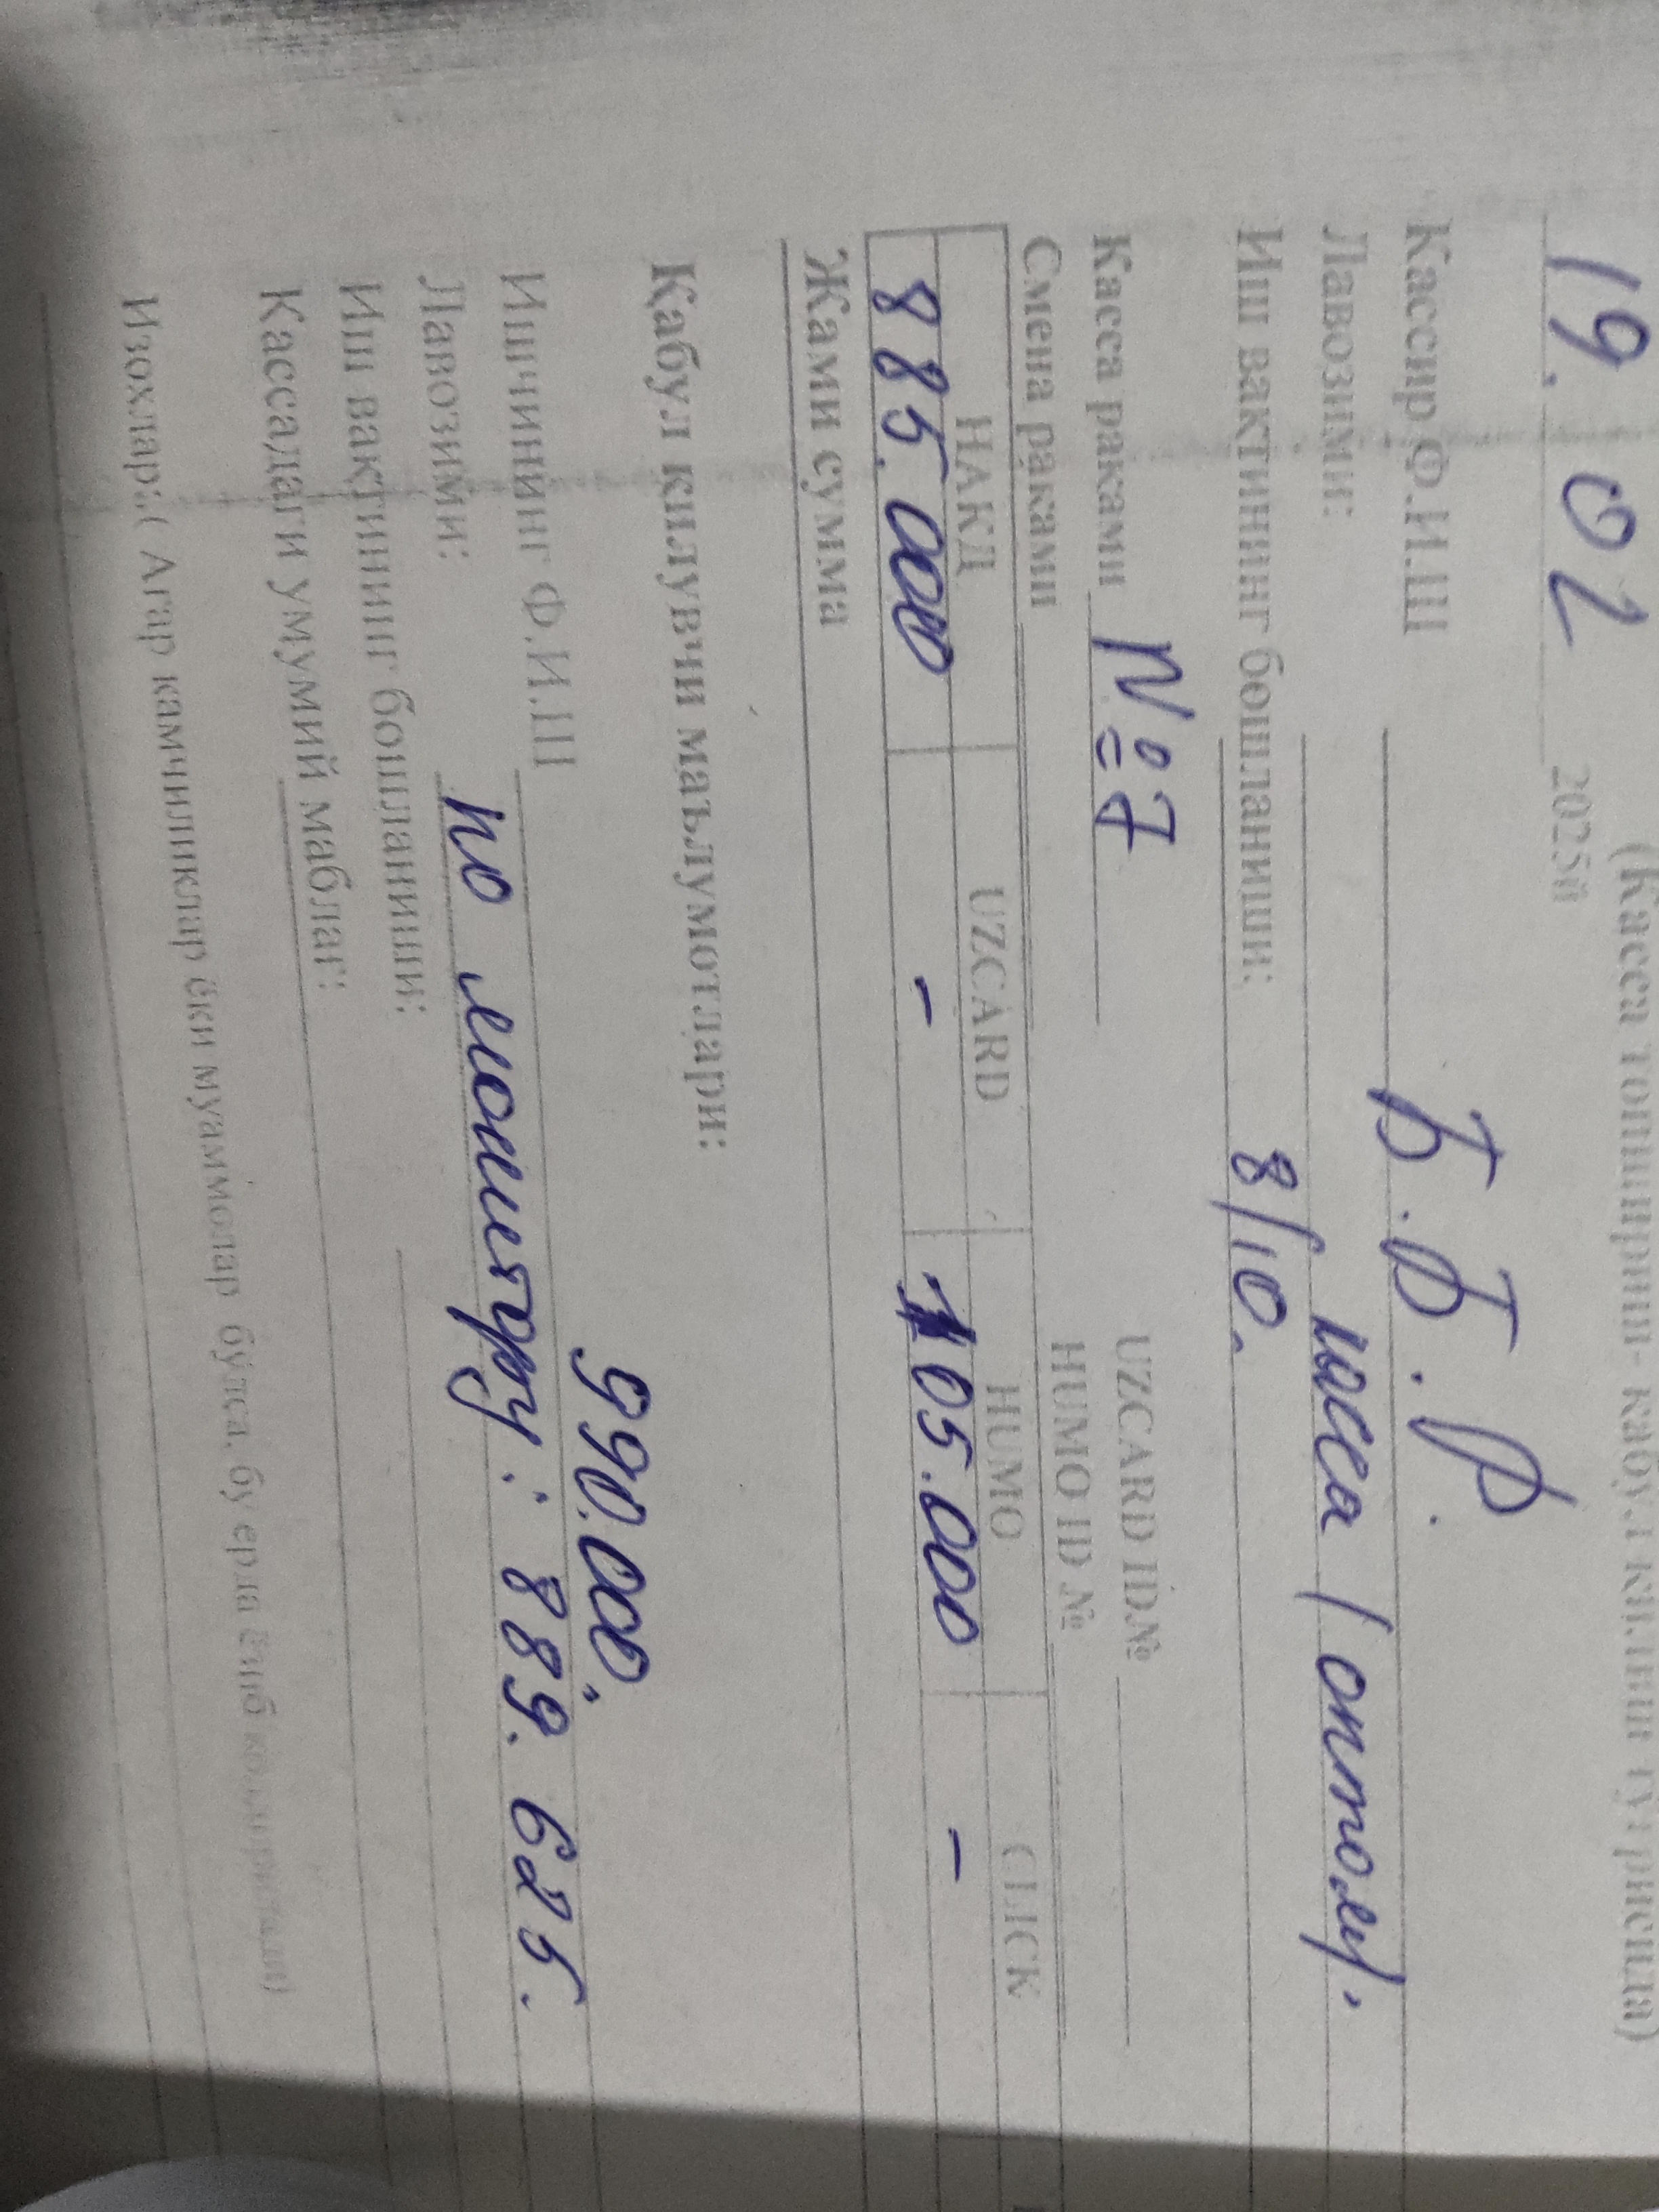 (Касса топшириш- кабул килиш тугрисида)
19. 02 2025й
Кассир Ф.И.Ш Б.Б.Р.
Лавозими: касса (оптом).
Иш вактининг бошланиши: 8/10.
Касса раками №7 UZCARD ID№
Смена раками HUMO ID №
НАКД UZCARD HUMO CLICK
885.000 - 105.000 -
Жами сумма
990.000.
Кабул килувчи маълумотлари:
Ишчининг Ф.И.Ш
Лавозими: по монитору: 889. 625.
Иш вактининг бошланиши:
Кассадаги умумий маблаг:
Изохлар:( Агар камчиликлар ёки муаммолар бўлса, бу ерда ёзиб